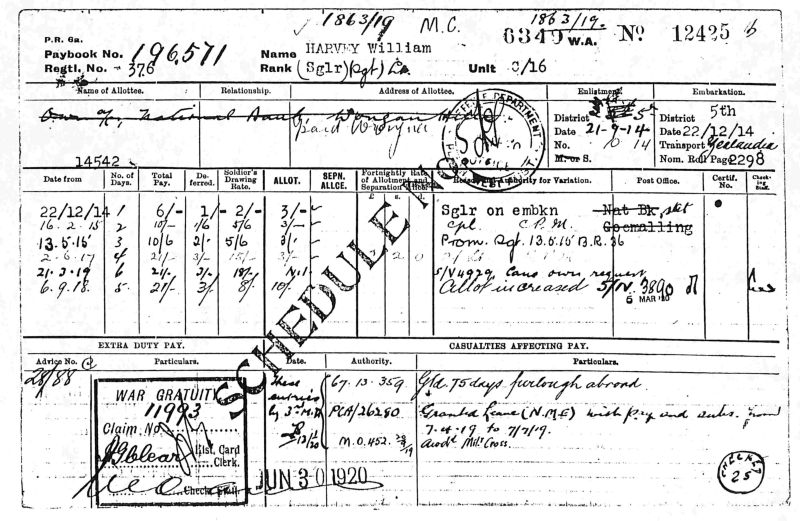 1863/19 M.C. 1863/19.
P.R. 6a.
Paybook No. 196,571 Name HARVEY William 6349 W.A. No 12425 b
Regtl. No. 376 Rank (Sglr) (Sgt) Lt. Unit C/16
Name of Allottee. Relationship. Address of Allottee. Enlistment. Embarkation.
Own a/c National Bank, Wongan Hills District 5th District 5th
paid Date 21-9-14 Date 22/12/14
No. 14 Transport Zeelandia
14542 M. or S. Nom. Roll Page 2298
DEFENCE DEPARTMENT
Date from No. of Days. Total Pay. Deferred. Soldier's Drawing Rate. ALLOT. SEPN. ALLCE. Fortnightly Rate of Allotment and Separation Allce. Reason and Authority for Variation. Post Office. Certif. No. Checking
£ s. d.
22/12/14 1 6/- 1/- 2/- 3/- Sglr on embkn Nat Bk
16.2.15 2 10/- 1/6 5/6 3/- Cpl. C.P.M. Goomalling
13.5.15 3 10/6 2/- 5/6 3/- Prom. Sgt. 13.5.15 B.R. 36
2.6.17 4 21/- 3/- 15/-
21.3.19 6 21/- 3/- 18/- Nil S/V4929 Canc own request
6.9.18. 5 21/- 3/- 8/- 10/- Allot increased S/N. 3890
5 MAR 20
SCHEDULE NO
EXTRA DUTY PAY. CASUALTIES AFFECTING PAY.
Advice No. Particulars. Date. Authority. Particulars.
28/88 These entries by 3rd M.D. 67.13.359 Gtd. 75 days furlough abroad.
WAR GRATUITY
11993 PCA/26280 Granted Leave (N.M.E) with pay and subs. from
Claim No. 12/1/20 7.4.19 to 7/7/19.
Hist. Card Clerk. M.O.452. Awdd Mily Cross.
JUN 30 1920
CHECKED 25